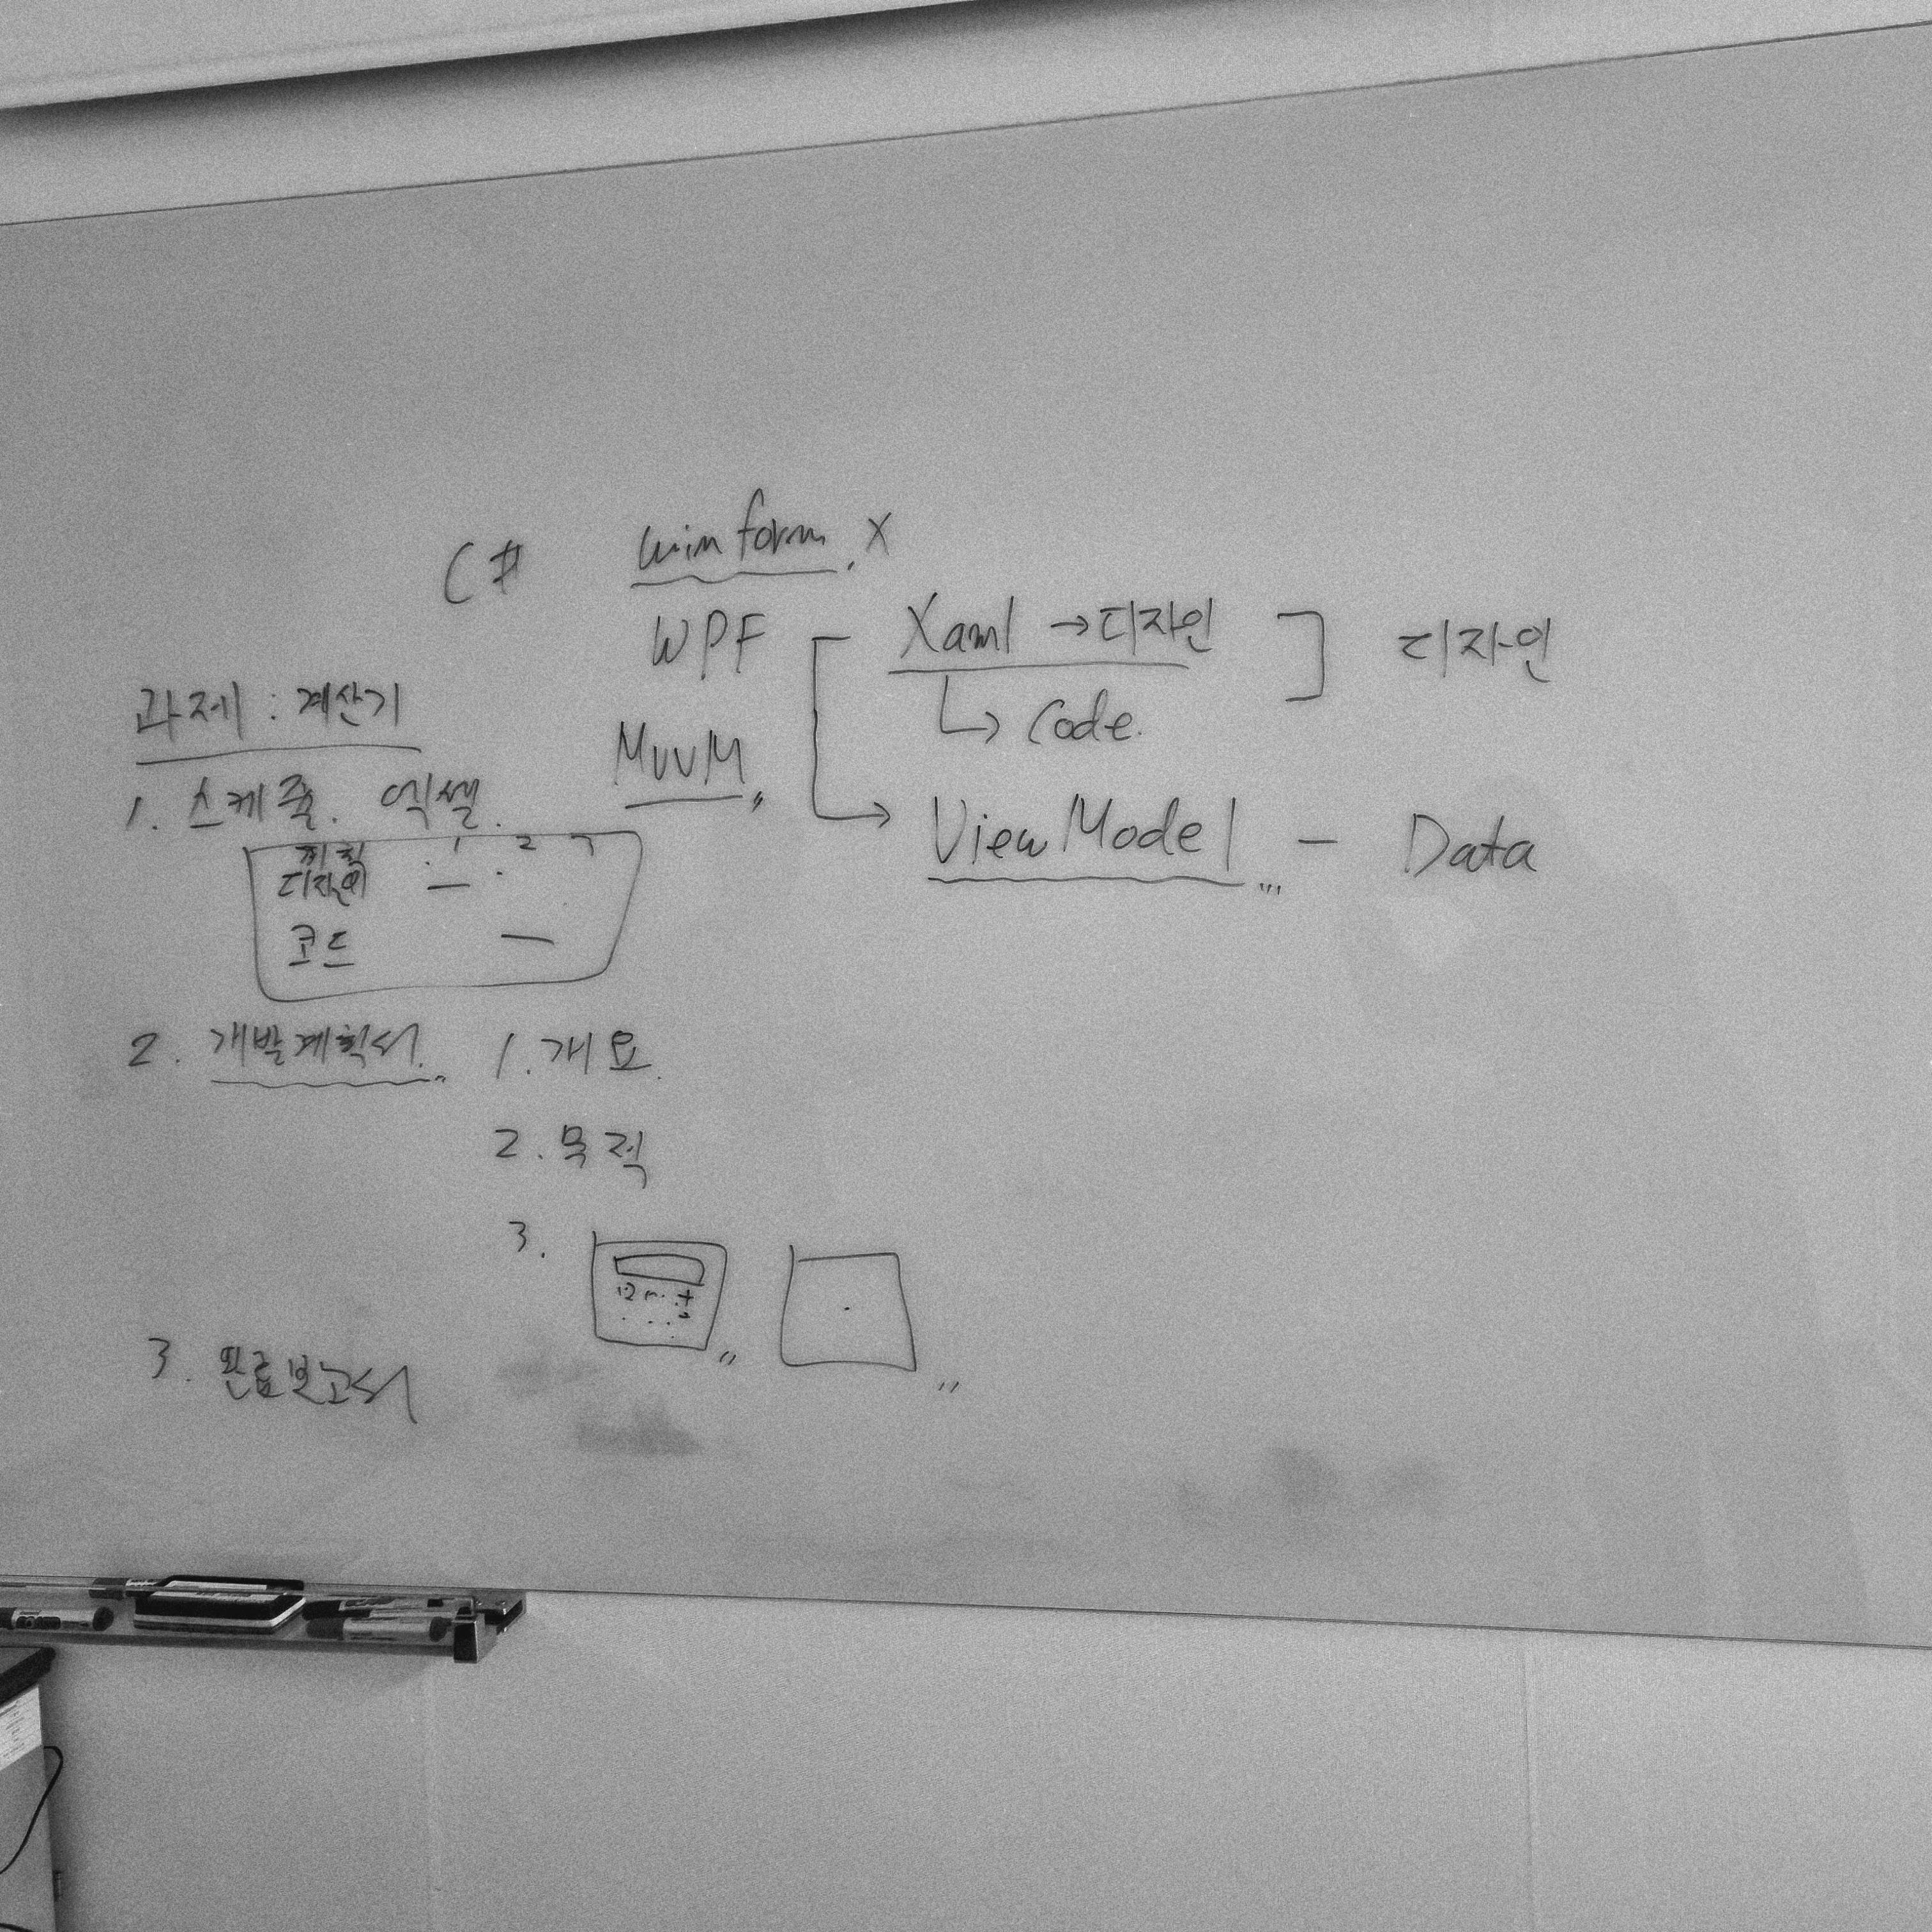 C# winform. X
WPF Xaml → 디자인 디자인
↳ Code.
MVVM
ViewModel - Data
과제 : 계산기
1. 스케줄. 엑셀.
계획 1 2 3
디자인
코드
2. 개발계획서. 1. 개요.
2. 목적
3.
12 +
3. 완료보고서